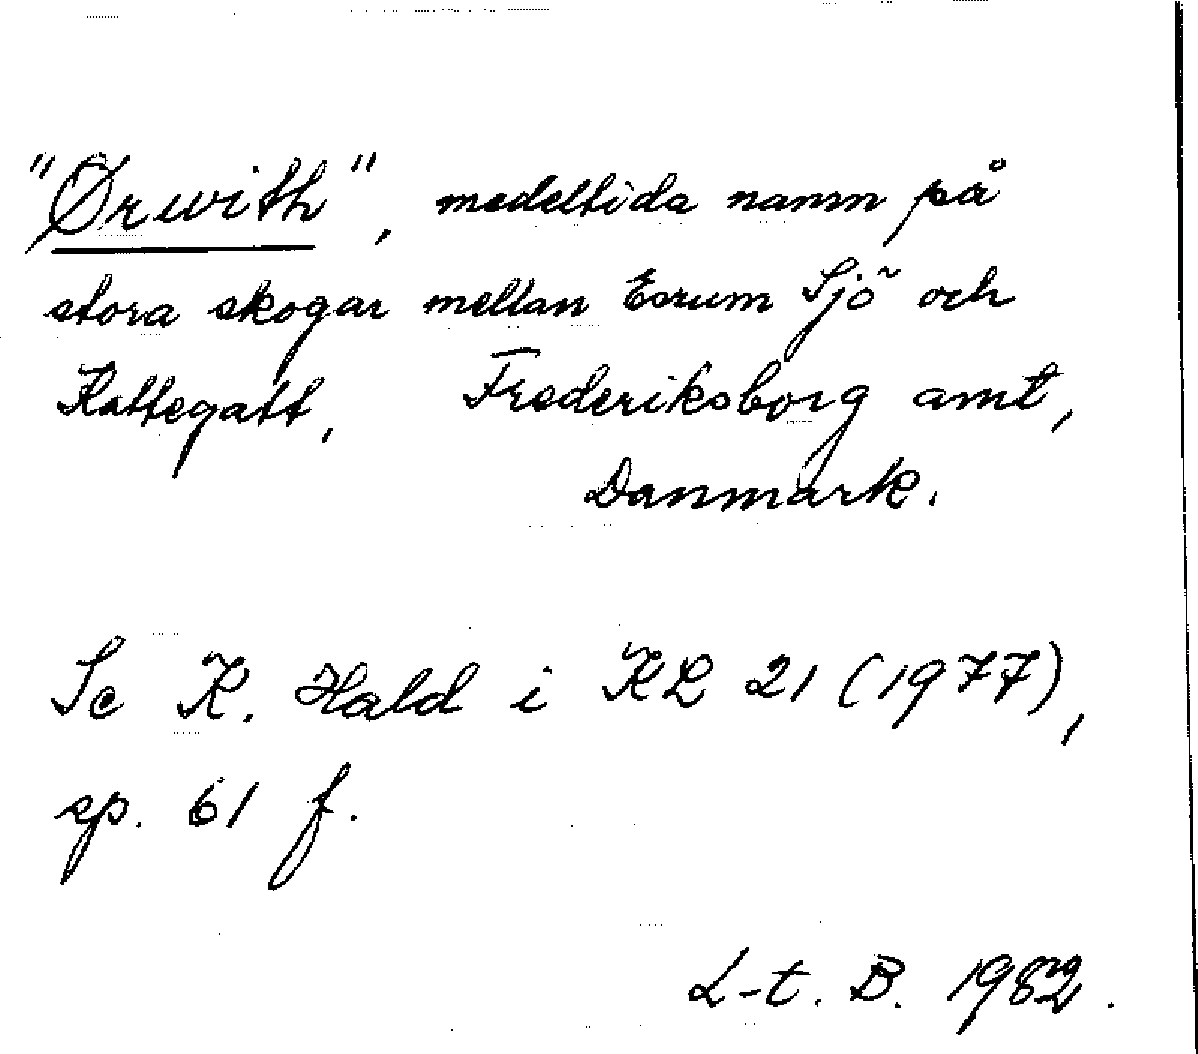 "Ørwith", medeltida namn på
stora skogar mellan Esrum Sjö och
Kattegatt, Frederiksborg amt,
Danmark.
Se K. Hald i KL 21 (1977),
sp. 61 f.
L-t. B. 1982.